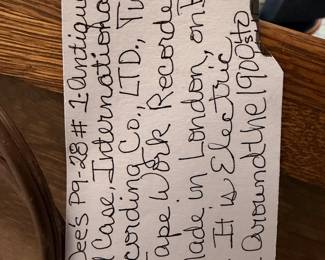 Dee's Pg-28# 1-Antique
Case, International
cording Co., LTD.,
ape Work Recorde
ade in London, on
It is Electric
around the 1900s to